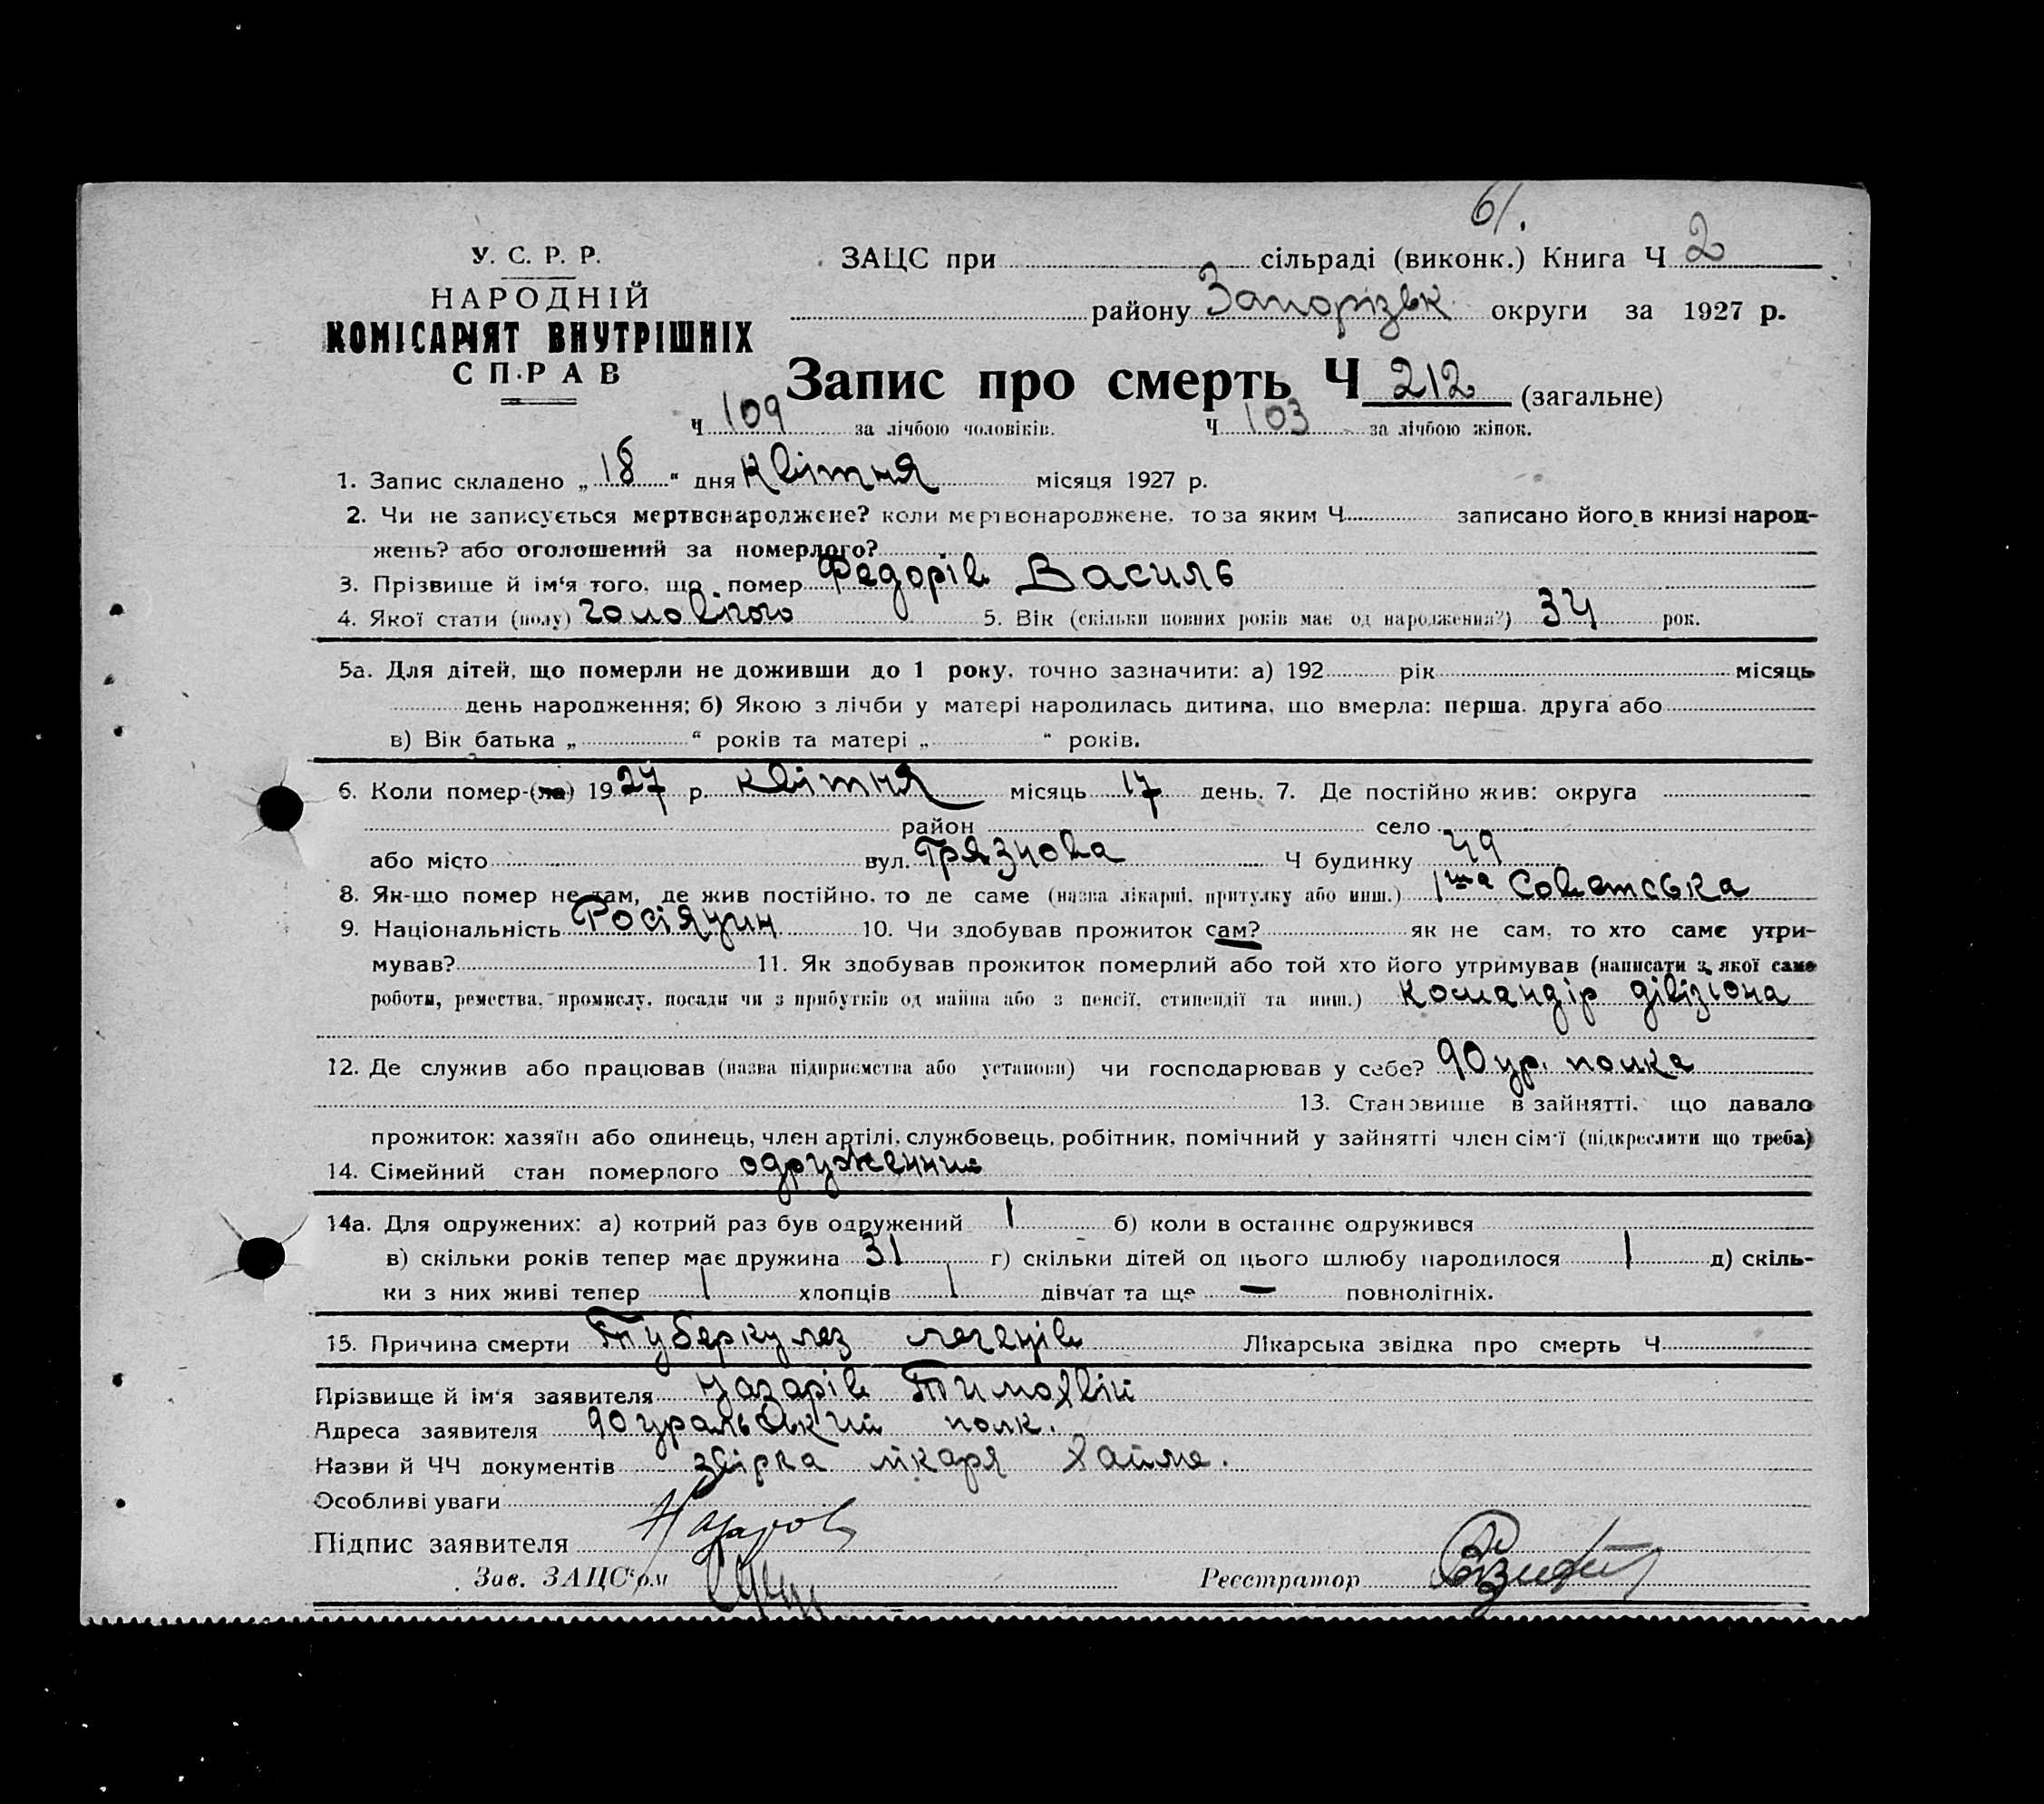 61.
У. С. Р. Р.
НАРОДНІЙ
КОМІСАРІЯТ ВНУТРІШНІХ
СПРАВ
ЗАЦС при сільраді (виконк.) Книга Ч 2
району Запорізьк округи за 1927 р.
Запис про смерть Ч 212 (загальне)
Ч 109 за лічбою чоловіків. Ч 103 за лічбою жінок.
1. Запис складено „18“ дня квітня місяця 1927 р.
2. Чи не записується мертвонароджене? коли мертвонароджене, то за яким Ч записано його в книзі народ-
жень? або оголошений за померлого?
3. Прізвище й ім'я того, що помер Федорів Василь
4. Якої стати (полу) чоловічого 5. Вік (скільки повних років має од народження?) 34 рок.
5а. Для дітей, що померли не доживши до 1 року, точно зазначити: а) 192 рік місяць
день народження; б) Якою з лічби у матері народилась дитина, що вмерла: перша, друга або
в) Вік батька „ “ років та матері „ “ років.
6. Коли помер-(ла) 1927 р. квітня місяць 17 день. 7. Де постійно жив: округа
район село
або місто вул. Грязнова Ч будинку 49
8. Як-що помер не там, де жив постійно, то де саме (назва лікарні, притулку або инш.) 1ша Советська
9. Національність Росіянин 10. Чи здобував прожиток сам? як не сам, то хто саме утри-
мував? 11. Як здобував прожиток померлий або той хто його утримував (написати з якої саме
роботи, ремества, промислу, посади чи з прибутків од майна або з пенсії, стипендії та инш.) командір дівізіона
12. Де служив або працював (назва підприємства або установи) чи господарював у себе? 90 ур. полка
13. Становище в зайнятті, що давало
прожиток: хазяїн або одинець, член артілі, службовець, робітник, помічний у зайнятті член сім'ї (підкреслити що треба)
14. Сімейний стан померлого одруженний
14а. Для одружених: а) котрий раз був одружений 1 б) коли в останнє одружився
в) скільки років тепер має дружина 31 г) скільки дітей од цього шлюбу народилося 1 д) скіль-
ки з них живі тепер 1 хлопців 1 дівчат та ще — повнолітніх.
15. Причина смерти Туберкулез легенів Лікарська звідка про смерть Ч
Прізвище й ім'я заявителя Назарів Тимофвій
Адреса заявителя 90 уральский полк.
Назви й ЧЧ документів лікаря
Особливі уваги
Підпис заявителя Назаров
Зав. ЗАЦС'ом
Реєстратор